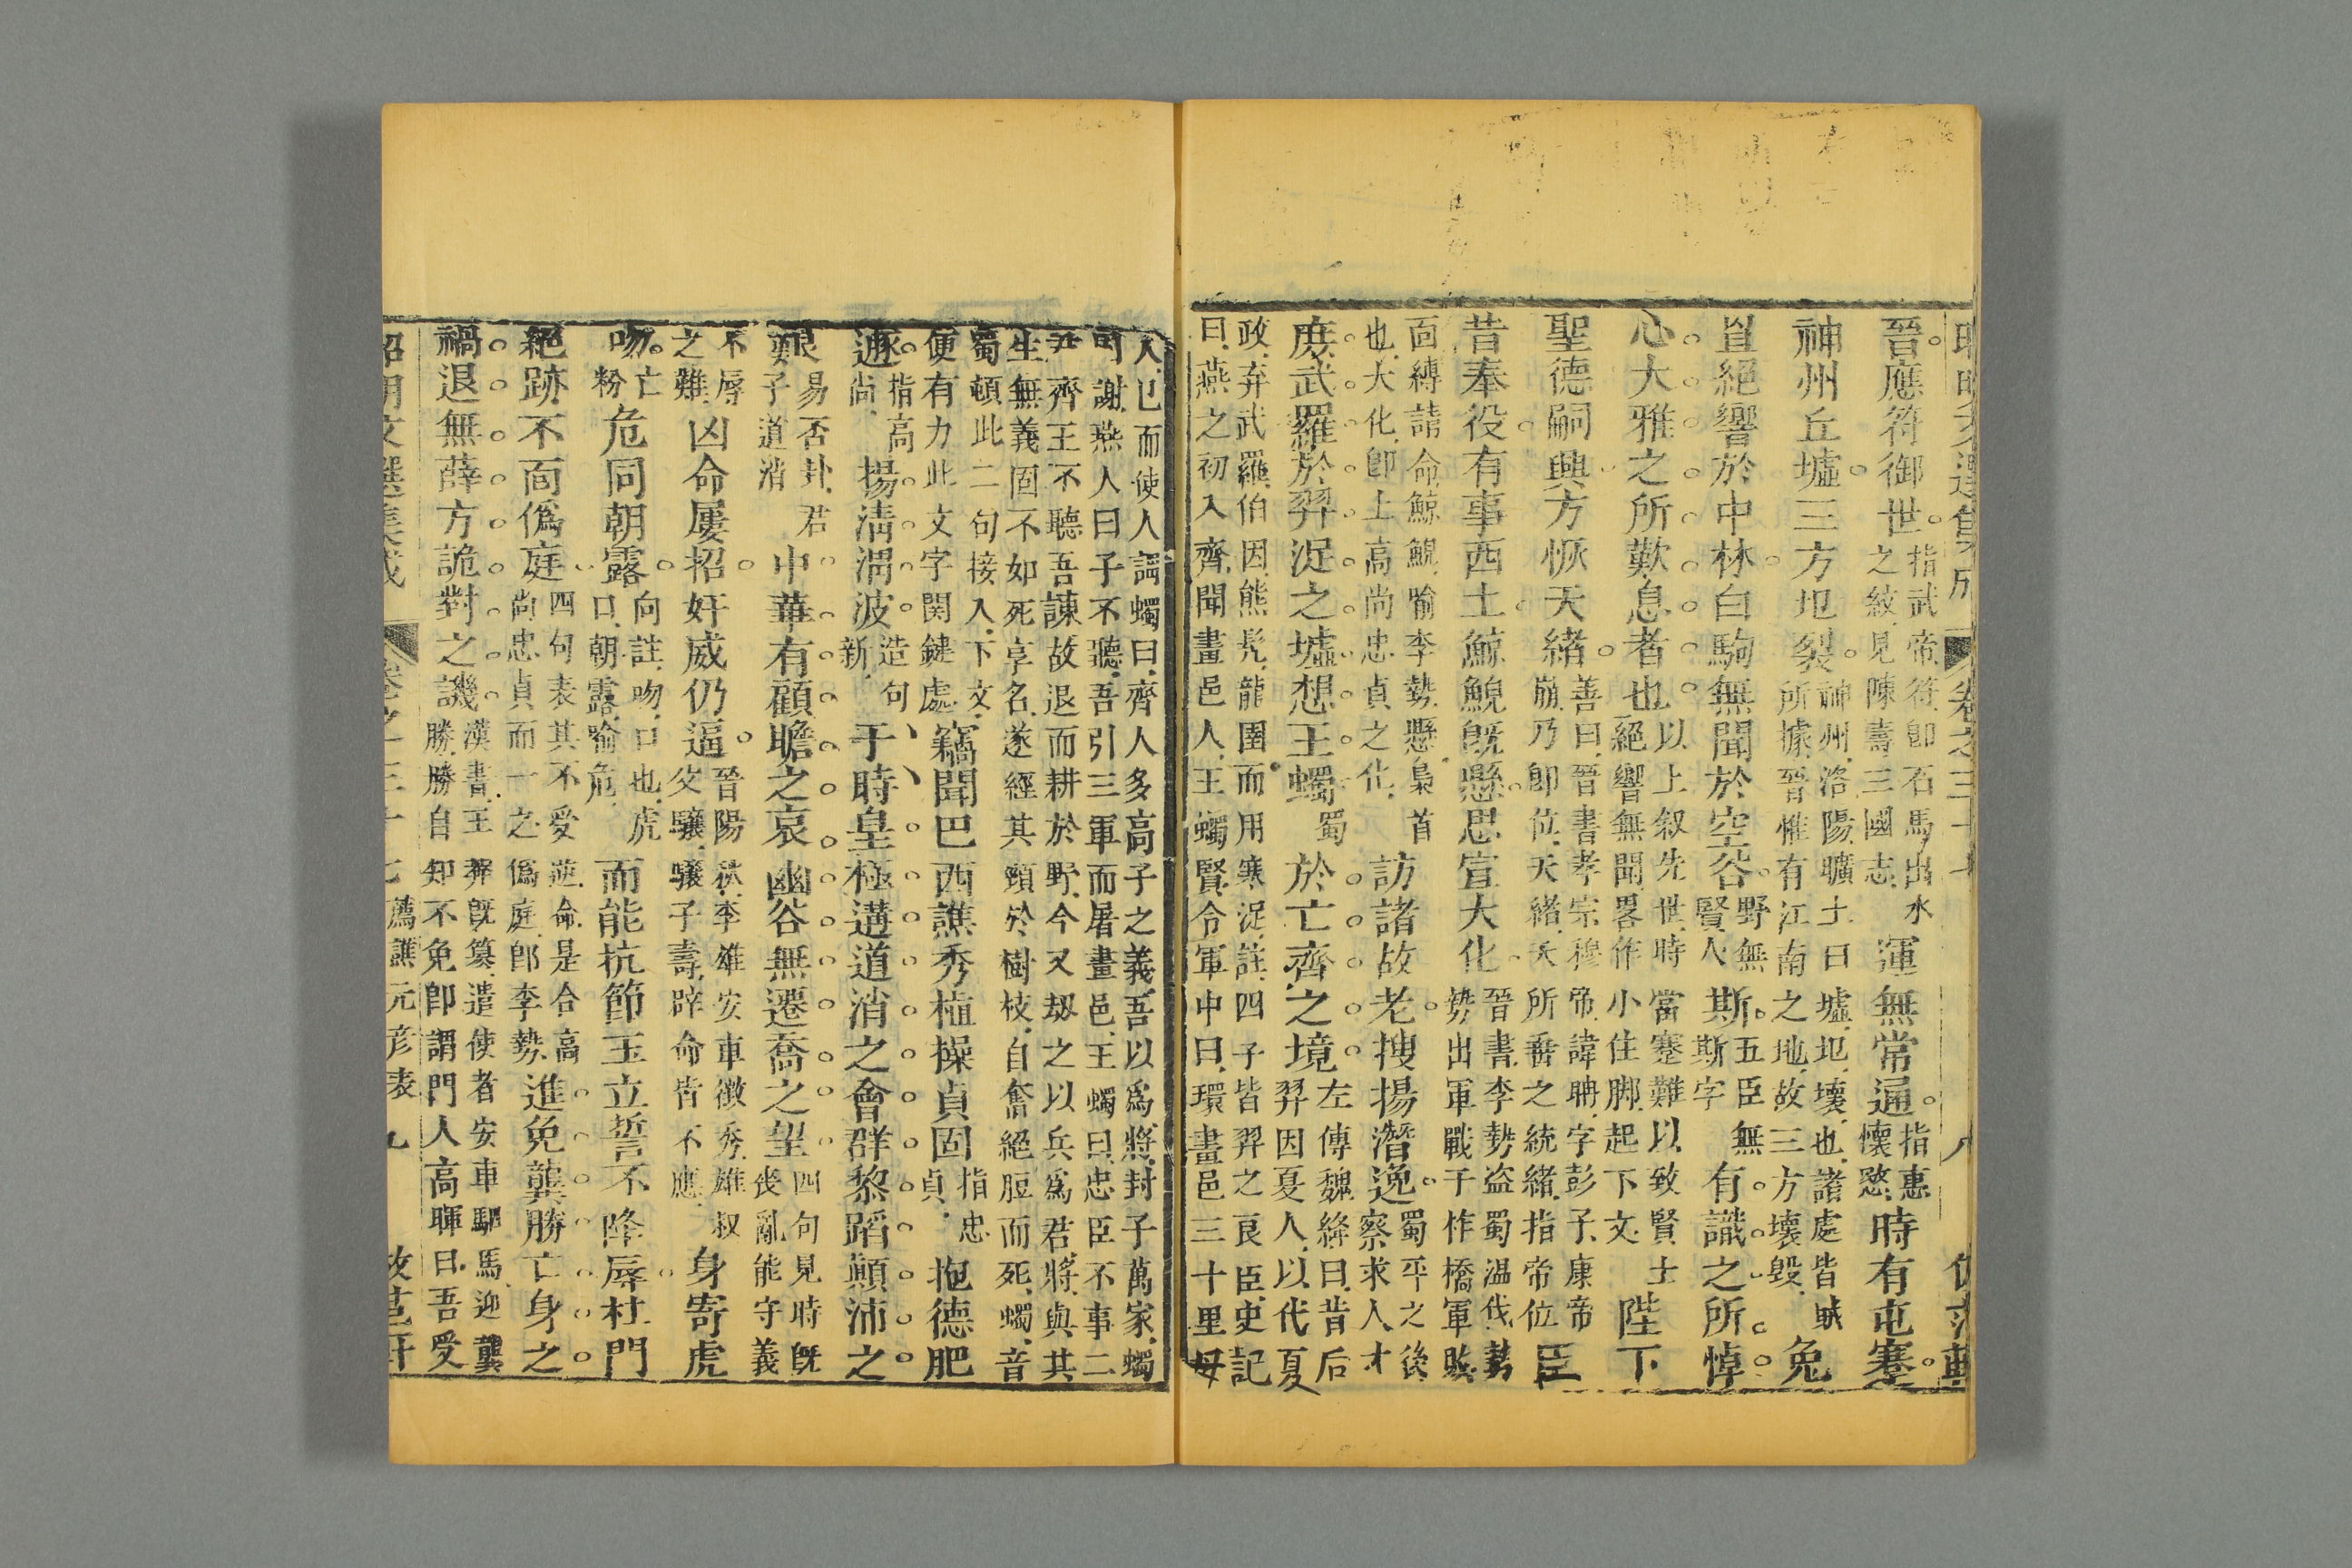 昭明文選集成 卷之三十七 八
晉應符御世指武帝符卽石馬出水之紋見陳壽三國志運無常通指惠懷愍時有屯蹇
神州丘墟三方圮裂神州洛陽曠土曰墟圮壞也諸處皆賊所據晉惟有江南之地故三方壞毀兔
罝絕響於中林白駒無聞於空谷野無賢人斯五臣無斯字有識之所悼
心大雅之所歎息者也以上叙先世時當蹇難以致賢士絕響無聞畧作小住脚起下文陛下
聖德嗣興方恢天緒善曰晉書孝宗穆帝諱聃字彭子康帝崩乃卽位天緒天所番之統緒指帝位臣
昔奉役有事西土鯨鯢旣懸思宣大化晉書李勢盜蜀温伐勢勢出軍戰于柞橋軍敗
面縛請命鯨鯢喻李勢懸梟首也大化卽上高尚忠貞之化訪諸故老搜揚潛逸蜀平之後察求人才
庶武羅於羿浞之墟想王蠋蜀於亡齊之境左傳魏絳曰昔后羿因夏人以代夏
政弃武羅伯因熊髠龍圉而用寒浞註四子皆羿之良臣史記
曰燕之初入齊聞畫邑人王蠋賢令軍中曰環畫邑三十里毋
入已而使人謂蠋曰齊人多高子之義吾以爲將封子萬家蠋
固謝燕人曰子不聽吾引三軍而屠畫邑王蠋曰忠臣不事二
君齊王不聽吾諫故退而耕於野今又刼之以兵爲君將與其
生無義固不如死享名遂經其頸於樹枝自奮絕脰而死蠋音
蜀頓此二句接入下文便有力此文字関鍵處竊聞巴西譙秀植操貞固指忠貞抱德肥
遯指高尚揚淸渭波造句新于時皇極遘道消之會群黎蹈顚沛之
艱易否卦君子道消中華有顧瞻之哀幽谷無遷喬之望四句見時旣喪亂能守義
不辱之難凶命屢招奸威仍逼晉陽秋李雄安車徵秀雄叔父驤驤子壽辟命皆不應身寄虎
吻亡粉危同朝露向註吻口也虎口朝露喻危而能抗節玉立誓不降辱杜門
絕跡不面僞庭四句表其不受逆命是合高尚忠貞而一之僞庭卽李勢進免龔勝亡身之
禍退無薛方詭對之譏漢書王莽旣簒遣使者安車駟馬迎龔勝勝自知不免卽謂門人高暉曰吾受
昭明文選集成 卷之三十七 薦譙元彥表 九